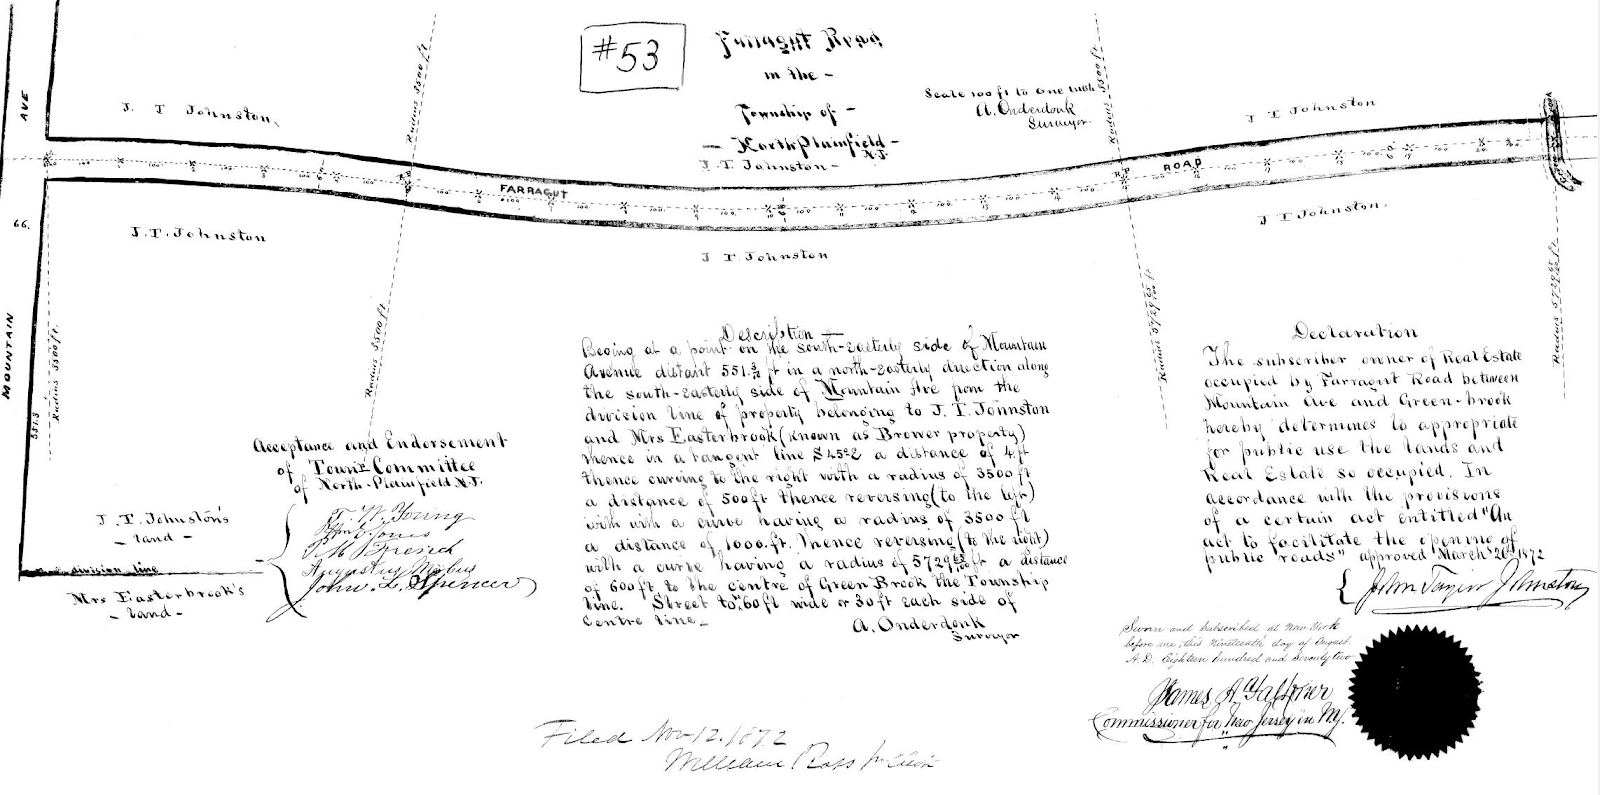 #53
Farragut Road
in the -
Township of -
- North Plainfield -
N.J.
Scale 100 ft to One Inch
A. Onderdonk
Surveyor.
J. T. Johnston.
J. T. Johnston -
J T Johnston
AVE
MOUNTAIN
66.
551.3
FARRAGUT
ROAD
Radius 3500 ft
Radius 3500 ft
J. T. Johnston
J T. Johnston
J T Johnston.
Radius 3500 ft.
Radius 3500 ft.
Radius 5729 65/100 ft
Radius 5729 65/100 ft
Description -
Beging at a point on the south-easterly side of Mountain
Avenue distant 551.3 ft in a north-easterly direction along
the south-easterly side of Mountain Ave from the
division line of property belonging to J. T. Johnston
and Mrs Easterbrook (known as Brower property)
thence in a tangent line S45E a distance of 4 ft
thence curving to the right with a radius of 3500 ft
a distance of 500 ft thence reversing (to the left)
with with a curve having a radius of 3500 ft
a distance of 1000. ft. thence reversing (to the right)
with a curve having a radius of 5729 65/100 ft a distance
of 600 ft, to the centre of Green Brook the Township
line. Street to be 60 ft wide or 30 ft each side of
Centre line -
A. Onderdonk
Surveyor
Declaration
The subscriber owner of Real Estate
occupied by Farragut Road between
Mountain ave and Green-brook
hereby determines to appropriate
for public use the lands and
Real Estate so occupied. In
accordance with the provisions
of a certain act entitled "An
act to facilitate the opening of
public roads" approved March 20th 1872
John Taylor Johnston
Sworn and Subscribed at New York
before me, this Nineteenth day of August
A.D. Eighteen hundred and Seventy two
James A
Commissioner for New Jersey in N.Y.
Acceptance and Endorsement
of Town Committee
of North-Plainfield N.J.
T. W. Young
Jones
P. M. French
Augustus Mobus
John. L. Spencer
J. T. Johnston's
- land -
division line
Mrs Easterbrook's
- land -
Filed Nov 12. 1872
William Ross Jr Clerk